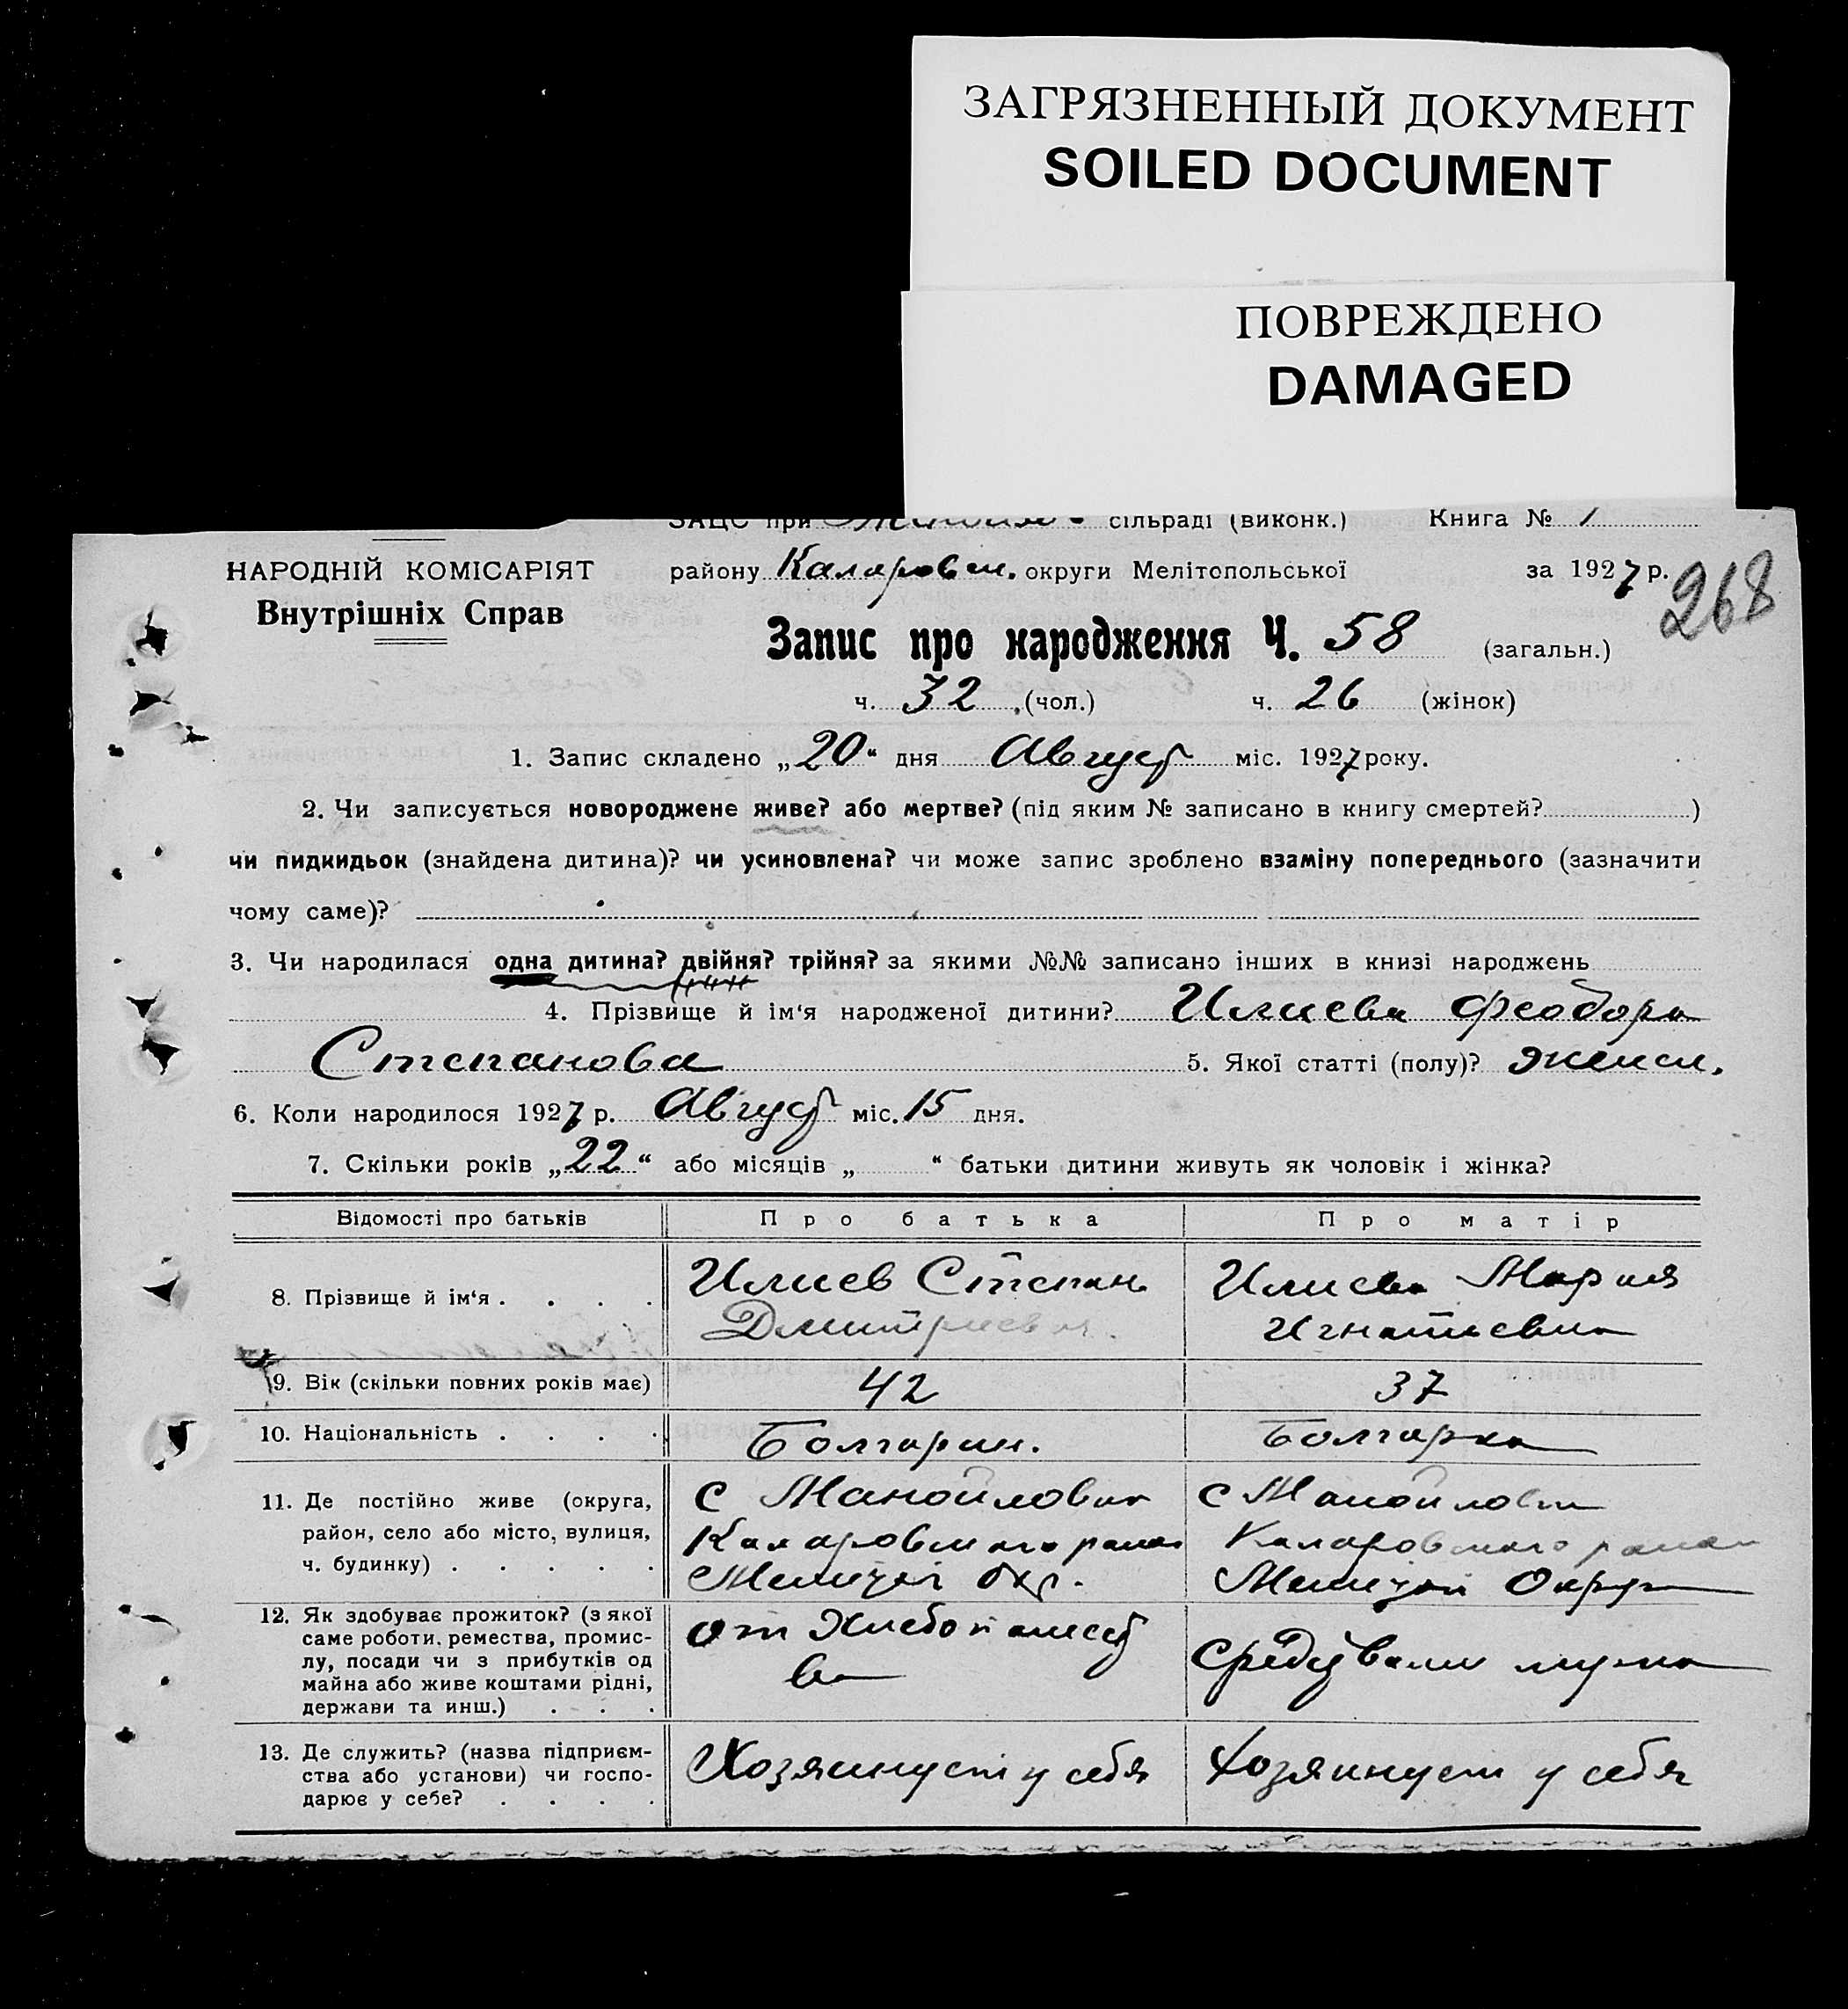 ЗАГРЯЗНЕННЫЙ ДОКУМЕНТ
SOILED DOCUMENT
ПОВРЕЖДЕНО
DAMAGED
ЗАЦС при сільраді (виконк.) Книга № 1
НАРОДНІЙ КОМІСАРІЯТ
Внутрішніх Справ
району Каларовск. округи Мелітопольської за 1927 р.
268
Запис про народження Ч. 58 (загальн.)
ч. 32 (чол.) ч. 26 (жінок)
1. Запис складено „20“ дня Август міс. 1927 року.
2. Чи записується новороджене живе? або мертве? (під яким № записано в книгу смертей? )
чи пидкидьок (знайдена дитина)? чи усиновлена? чи може запис зроблено взаміну попереднього (зазначити
чому саме)?
3. Чи народилася одна дитина? двійня? трійня? за якими №№ записано інших в книзі народжень
4. Прізвище й ім‘я народженої дитини? Илиева Феодора
Степанова 5. Якої статті (полу)? женск.
6. Коли народилося 1927 р. Август міс. 15 дня.
7. Скільки років „22“ або місяців „ “ батьки дитини живуть як чоловік і жінка?
Відомості про батьків Про батька Про матір
8. Прізвище й ім‘я . . . . Илиев Степан Илиева Мария
Дмитриевич. Игнатиевна
9. Вік (скільки повних років має) 42 37
10. Національність . . . . Болгарин. Болгарка
11. Де постійно живе (округа, с Манойловка с Манойловка
район, село або місто, вулиця, Каларовского района Каларовского района
ч. будинку) . . . . . Мелитоп Окр. Мелитоп Округа
12. Як здобуває прожиток? (з якої от Хлебопашест
саме роботи, ремества, промис- ва Средствами мужа
лу, посади чи з прибутків од
майна або живе коштами рідні,
держави та инш.) . . .
13. Де служить? (назва підприєм- Хозяинует у себя Хозяинует у себя
ства або установи) чи госпо-
дарює у себе? . . . .